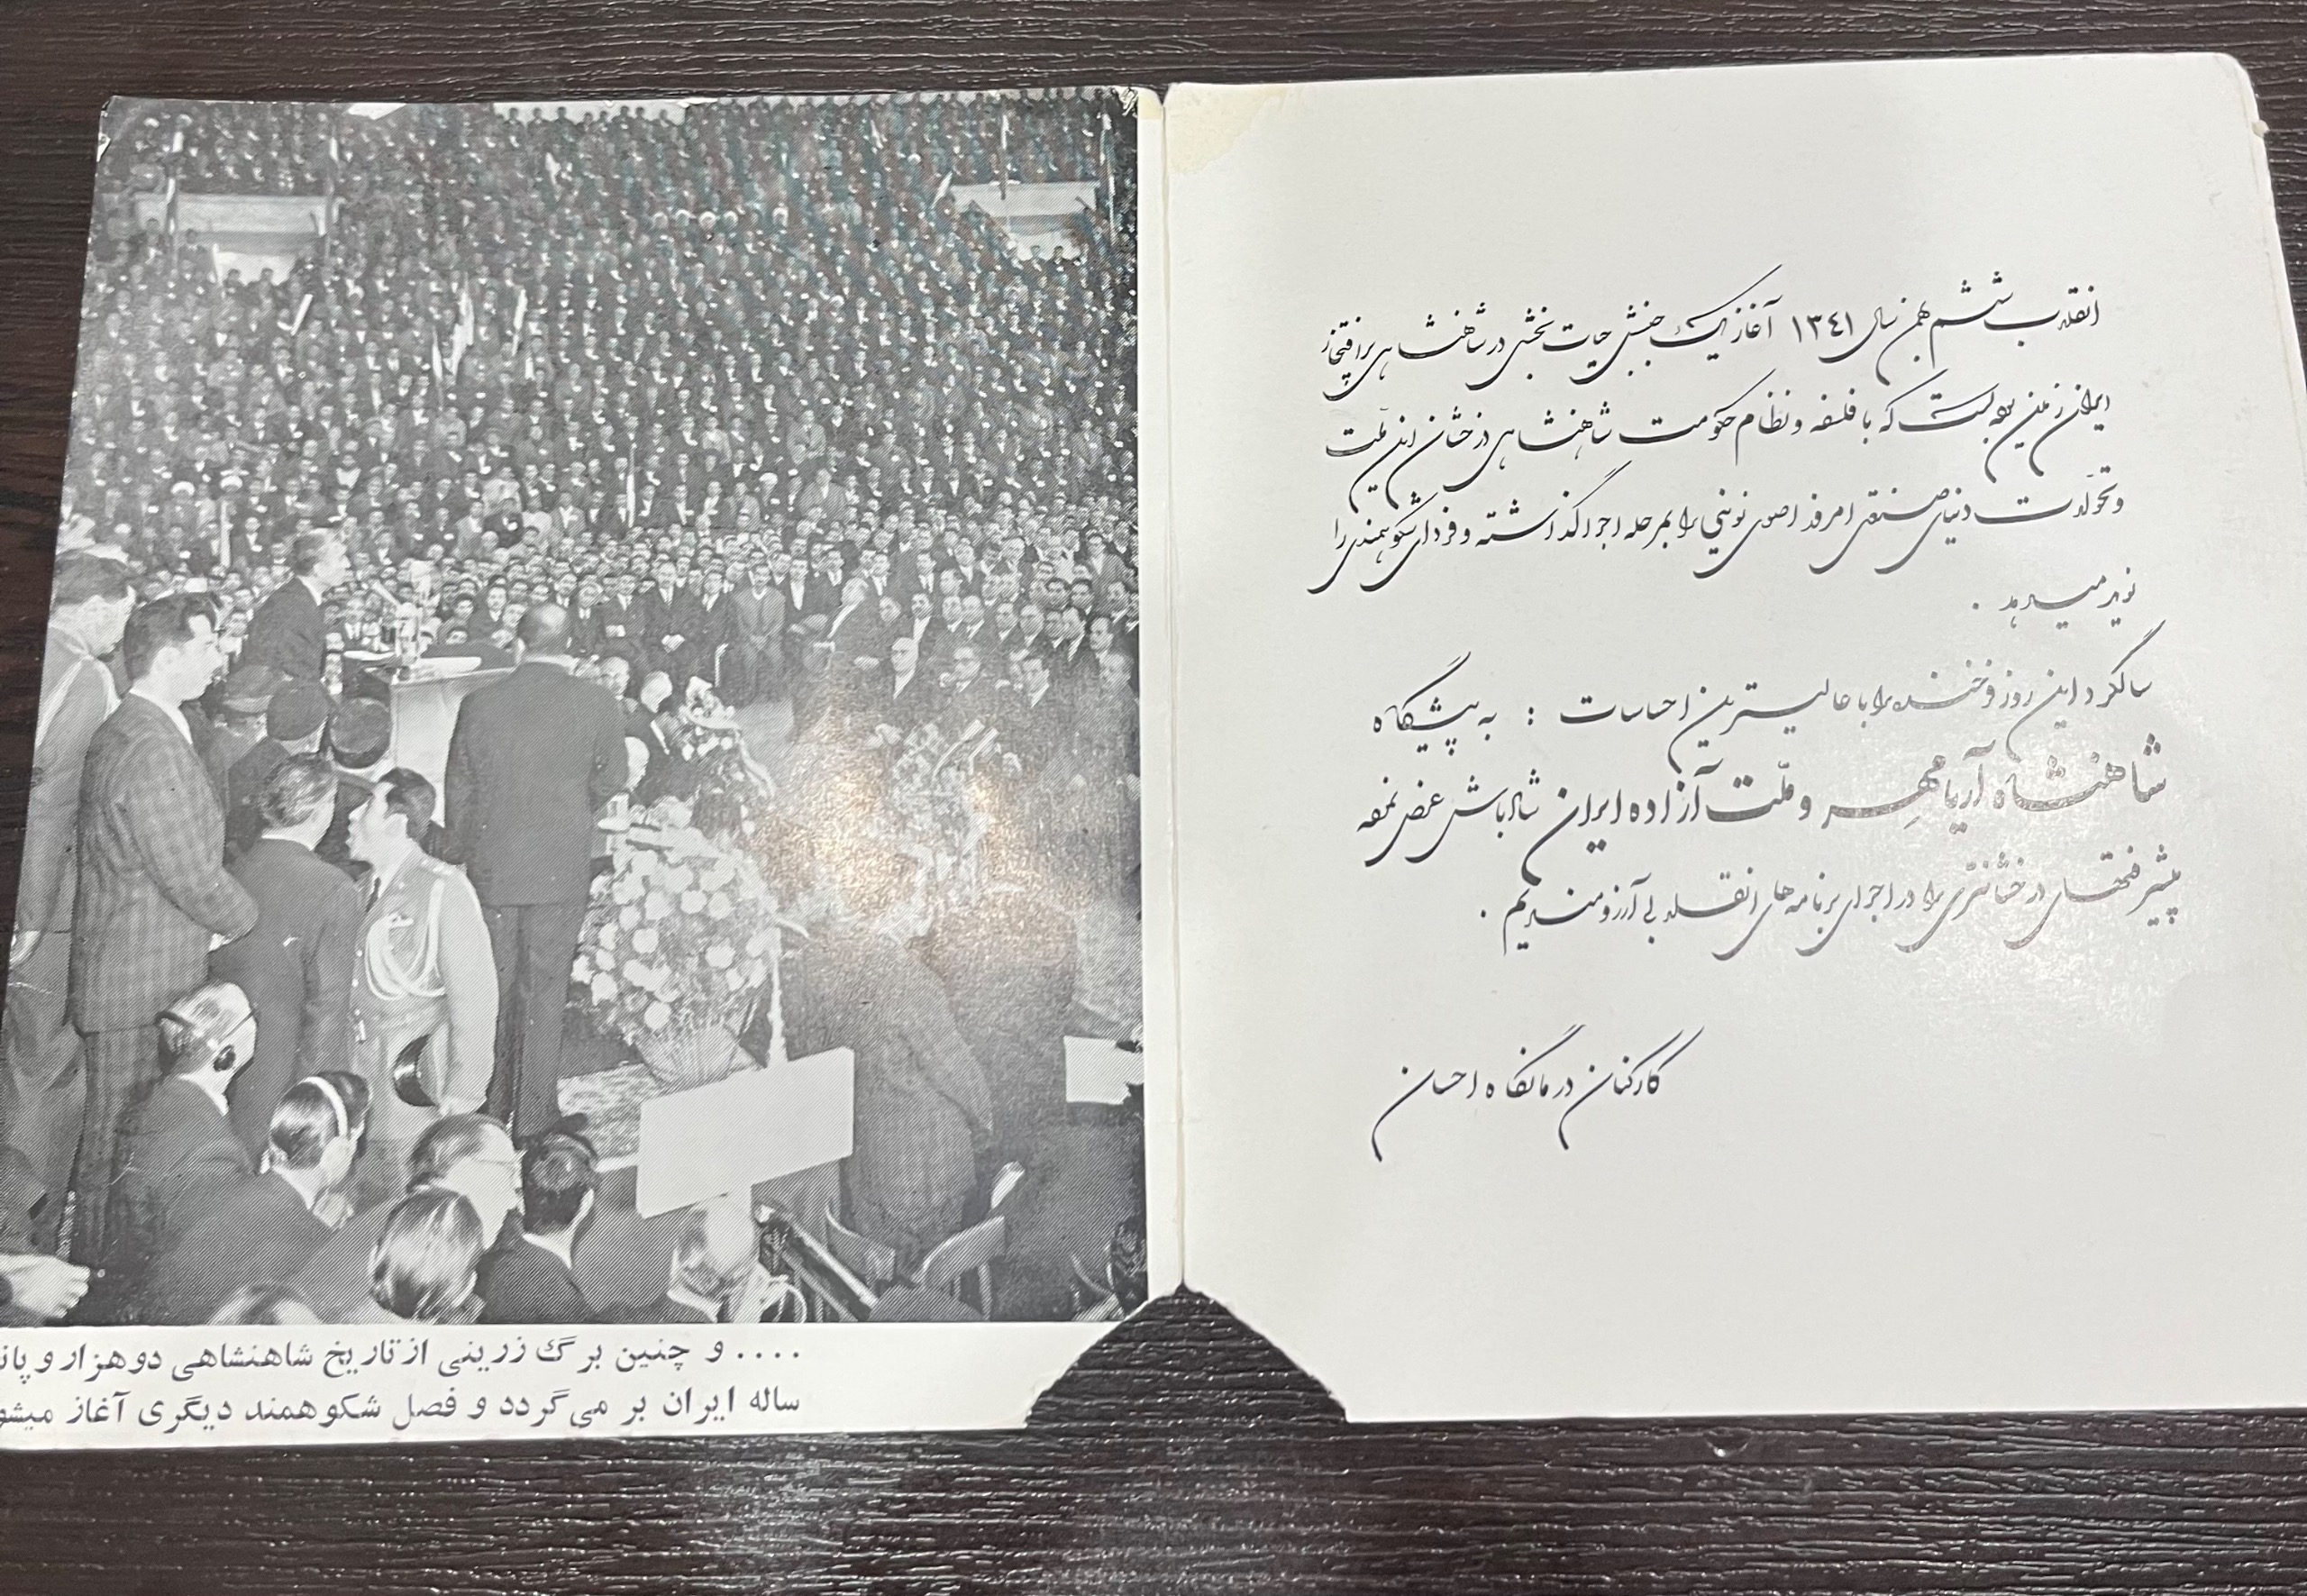 انقلاب ششم بهمن سال ۱۳٤۱ آغاز یک جنبش حیات بخشی در شاهنشاهی پرافتخار
ایران زمین بوده است که با فلسفه و نظام حکومت شاهنشاهی درخشان این ملّت
و تحوّلات دنیای صنعتی امروز اصول نوینی را بمرحله اجرا گذاشته و فردای شکوهمندی را
نوید میدهد .
سالگرد این روز فرخنده را با عالیترین احساسات : به پیشگاه
شاهنشاه آریامهر و ملّت آزاده ایران شادباش عرض نموده
پیشرفتهای درخشانتری را در اجرای برنامه های انقلابی آرزومندیم .
کارکنان درمانگاه احسان
.... و چنین برگ زرینی از تاریخ شاهنشاهی دوهزار و پان
ساله ایران بر می‌گردد و فصل شکوهمند دیگری آغاز میشو